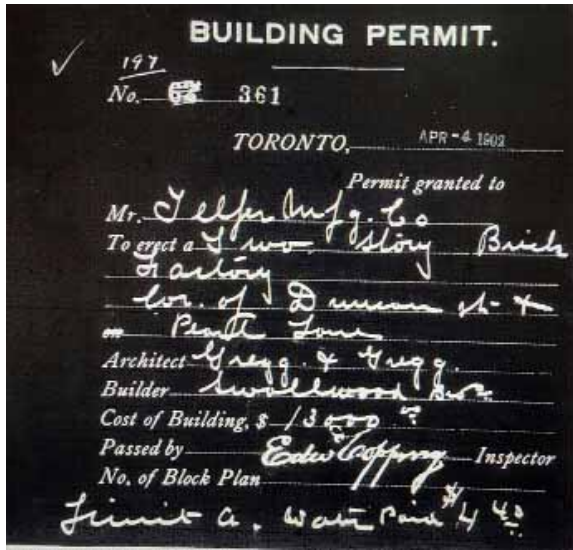 BUILDING PERMIT.
197
No. 361
TORONTO, APR -4 1902
Permit granted to
Mr. Telfer Mfg. Co
To erect a Two Story Brick
Factory
Cor. of Duncan st &
Pearl Lane
Architect Gregg & Gregg.
Builder Smallwood Bros
Cost of Building, $ 13000
Passed by Edw Copping Inspector
No. of Block Plan
Limit A. Water Paid $4 40